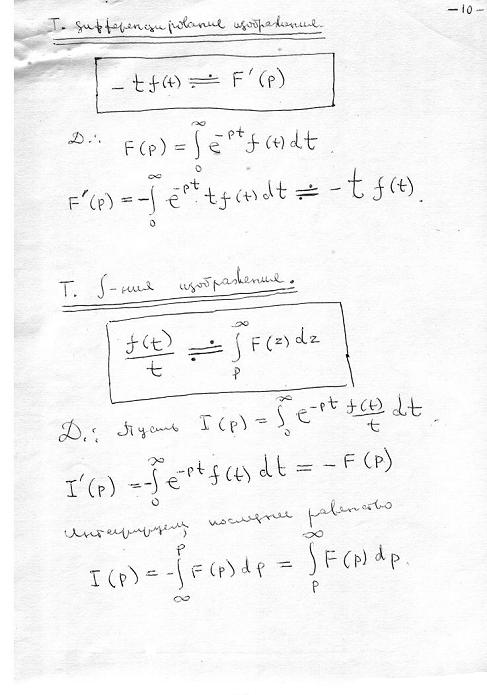 — 10 —
Т. дифференцирования изображения.
− t f(t) ≓ F'(p)
Д.: F(p) = ∫₀^∞ e^{-pt} f(t) dt.
F'(p) = −∫₀^∞ e^{-pt} t f(t) dt ≓ − t f(t).
Т. ∫-ния изображения.
f(t)/t ≓ ∫_p^∞ F(z) dz
Д.: Пусть I(p) = ∫₀^∞ e^{-pt} f(t)/t dt.
I'(p) = −∫₀^∞ e^{-pt} f(t) dt = − F(p)
Интегрируем, последнее равенство
I(p) = −∫_∞^p F(p) dp = ∫_p^∞ F(p) dp.